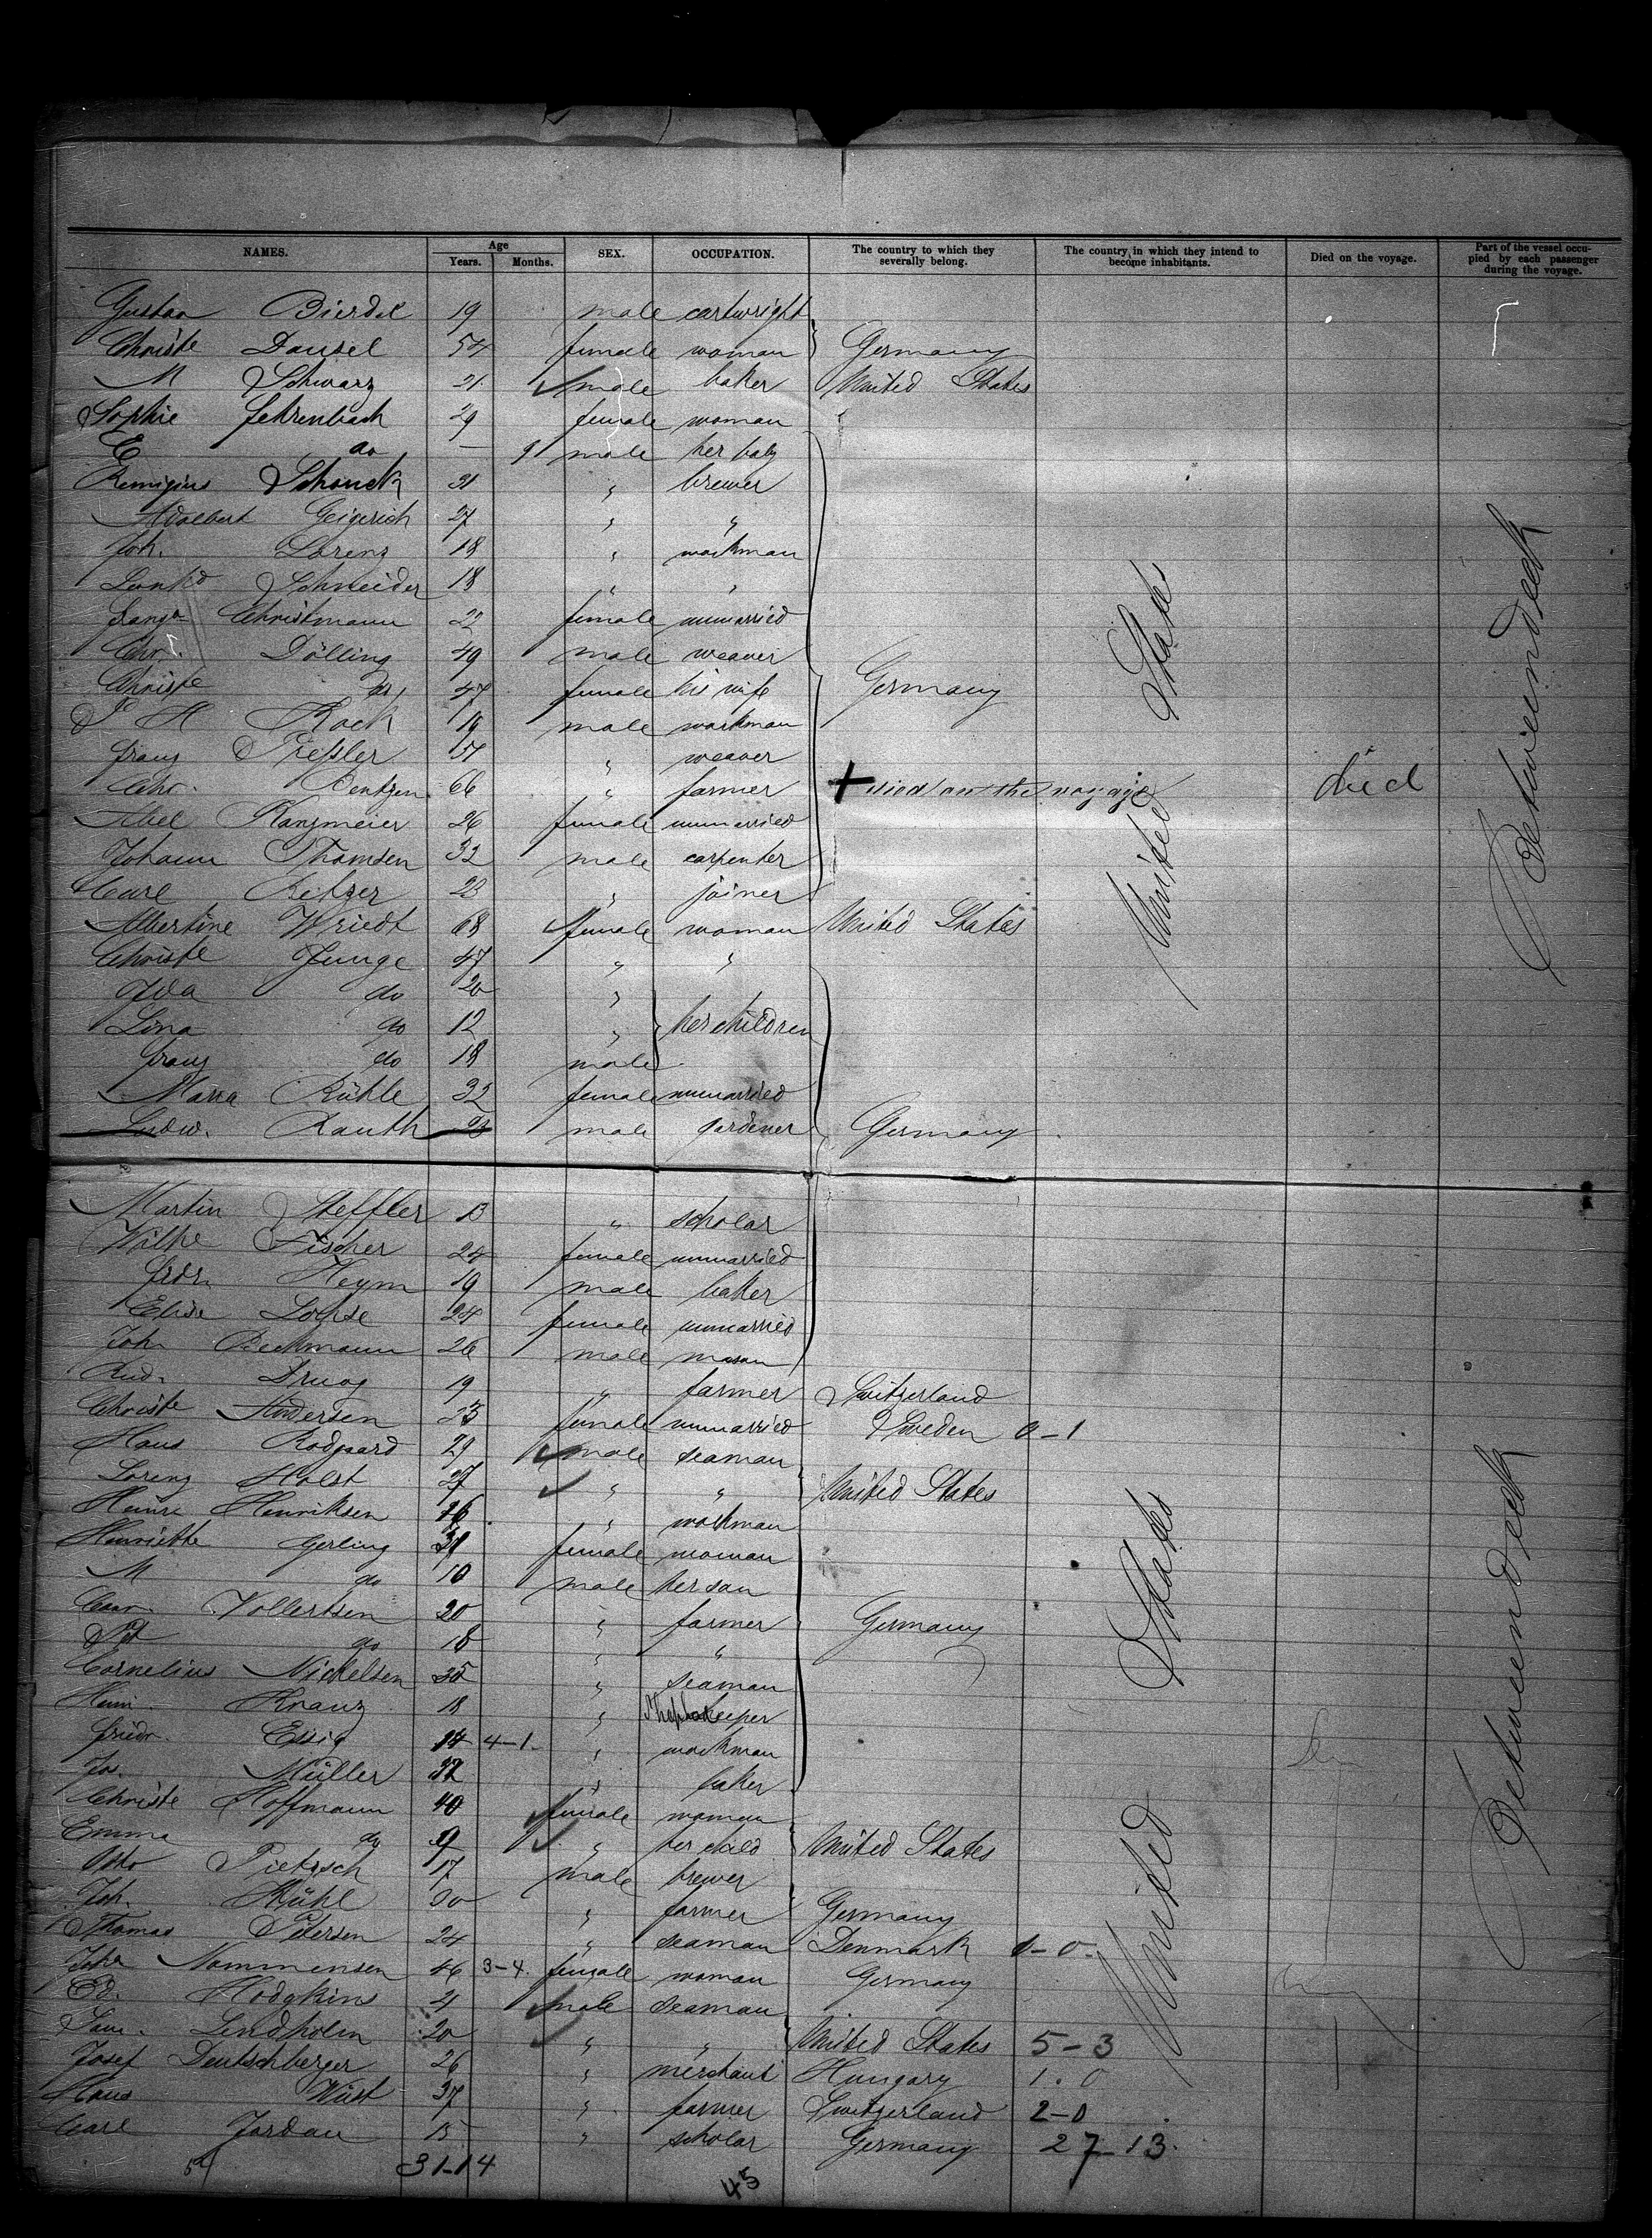 NAMES. Age Years. Months. SEX. OCCUPATION. The country to which they severally belong. The country in which they intend to become inhabitants. Died on the voyage. Part of the vessel occupied by each passenger during the voyage.
Gustav Bierdel 19 male cartwright
Christe Dausel 54 female woman Germany
M Schwarz 21 male baker United States
Sophie Fehrenbach 29 female woman
E do — 9 male her baby
Remigius Schonck 31 " brewer
Adalbert Geigerich 27 " "
Joh. Lorenz 18 " workman
Schneider 18 " "
Christmann 22 female unmarried
Chr. Dölling 49 male weaver
Christe do 47 female his wife Germany
H Rock 19 male workman
Franz weaver
Chr. Bentzen 66 " farmer + died on the voyage died
Abel Hanzmeier 26 female unmarried
Johann Thomsen 32 male carpenter
Carl Retzer 23 " joiner
Albertine Wriedt 68 female woman United States
Christe Junge 47 " "
Ida do 20 "
Lina do 12 " her children
Franz do 18 male
Maria Rühle 32 female unmarried
Ludw. Rauth 23 male gardener Germany
United States
Betweendeck
Martin Steffler 13 " scholar
Wilhe Fischer 24 female unmarried
Frdr. Heym 19 male baker
Elise Lohse 24 female unmarried
Joh. Beckmann 26 male mason
Rud. 19 " farmer Switzerland
Christe Andersen 23 female unmarried Sweden 0-1
Hans Rodgaard 29 male seaman
Lorenz Holst 27 " " United States
Heinr Henriksen 26 " workman
Henriette Gerling 31 female woman
M do 10 male her son
Vollertsen 20 " farmer Germany
do 18 " "
Cornelius Nickelsen 35 " seaman
Heinr. Kranz 18 " Shopkeeper
Friedr. Essig 14 4-1. " workman
Jos. Müller 32 " baker
Christe Hoffmann 40 female woman
Emma do 9 " her child United States
Otto Pietzsch 17 male brewer
Joh. Kühl 30 " farmer Germany
Thomas Petersen 24 " seaman Denmark 1-0-
Joha Nommensen 46 3-4. female woman Germany
Ed. Hodgkins 21 male seaman
Lindholm 20 " " United States 5-3
Josef Deutschberger 26 " merchant Hungary 1.0
Hans Wüst 37 " farmer Switzerland 2-0
Carl Jordan 15 " scholar Germany 27-13.
31-14
45
United States
Betweendeck